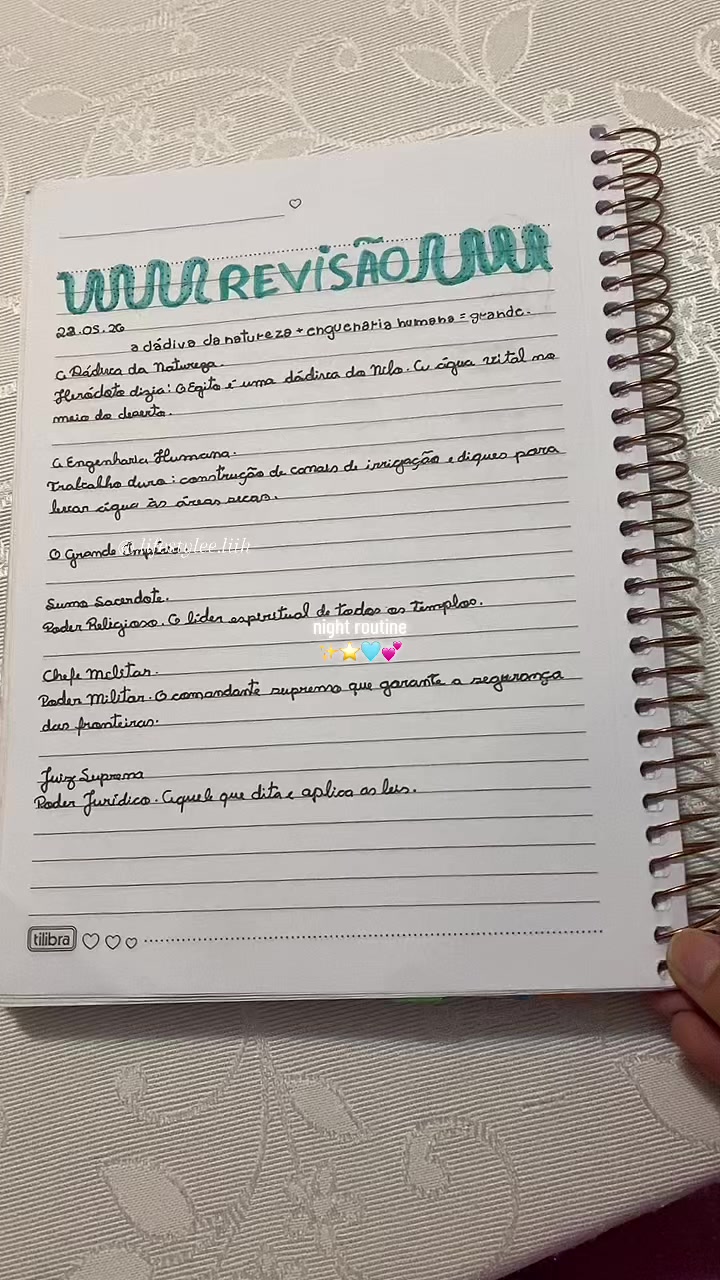 REVISÃO
22.05.26
a dádiva da natureza + enguenaria humana = grande.
A Dádiva da Natureza.
Heródoto dizia: O Egito é uma dádiva do Nilo. A água vital no
meio do deserto.
A Engenharia Humana.
Trabalho duro: construção de canais de irrigação e diques para
levar água às áreas secas.
O Grande Império.
@ lifestylee.liih
Sumo Sacerdote.
Poder Religioso. O líder espiretual de todos os templos.
night routine
✨⭐🩵💕
Chefe Militar.
Poder Militar. O comandante supremo que garante a segurança
das fronteiras.
Juiz Supremo
Poder Jurídico. Aquele que dita e aplica as leis.
tilibra